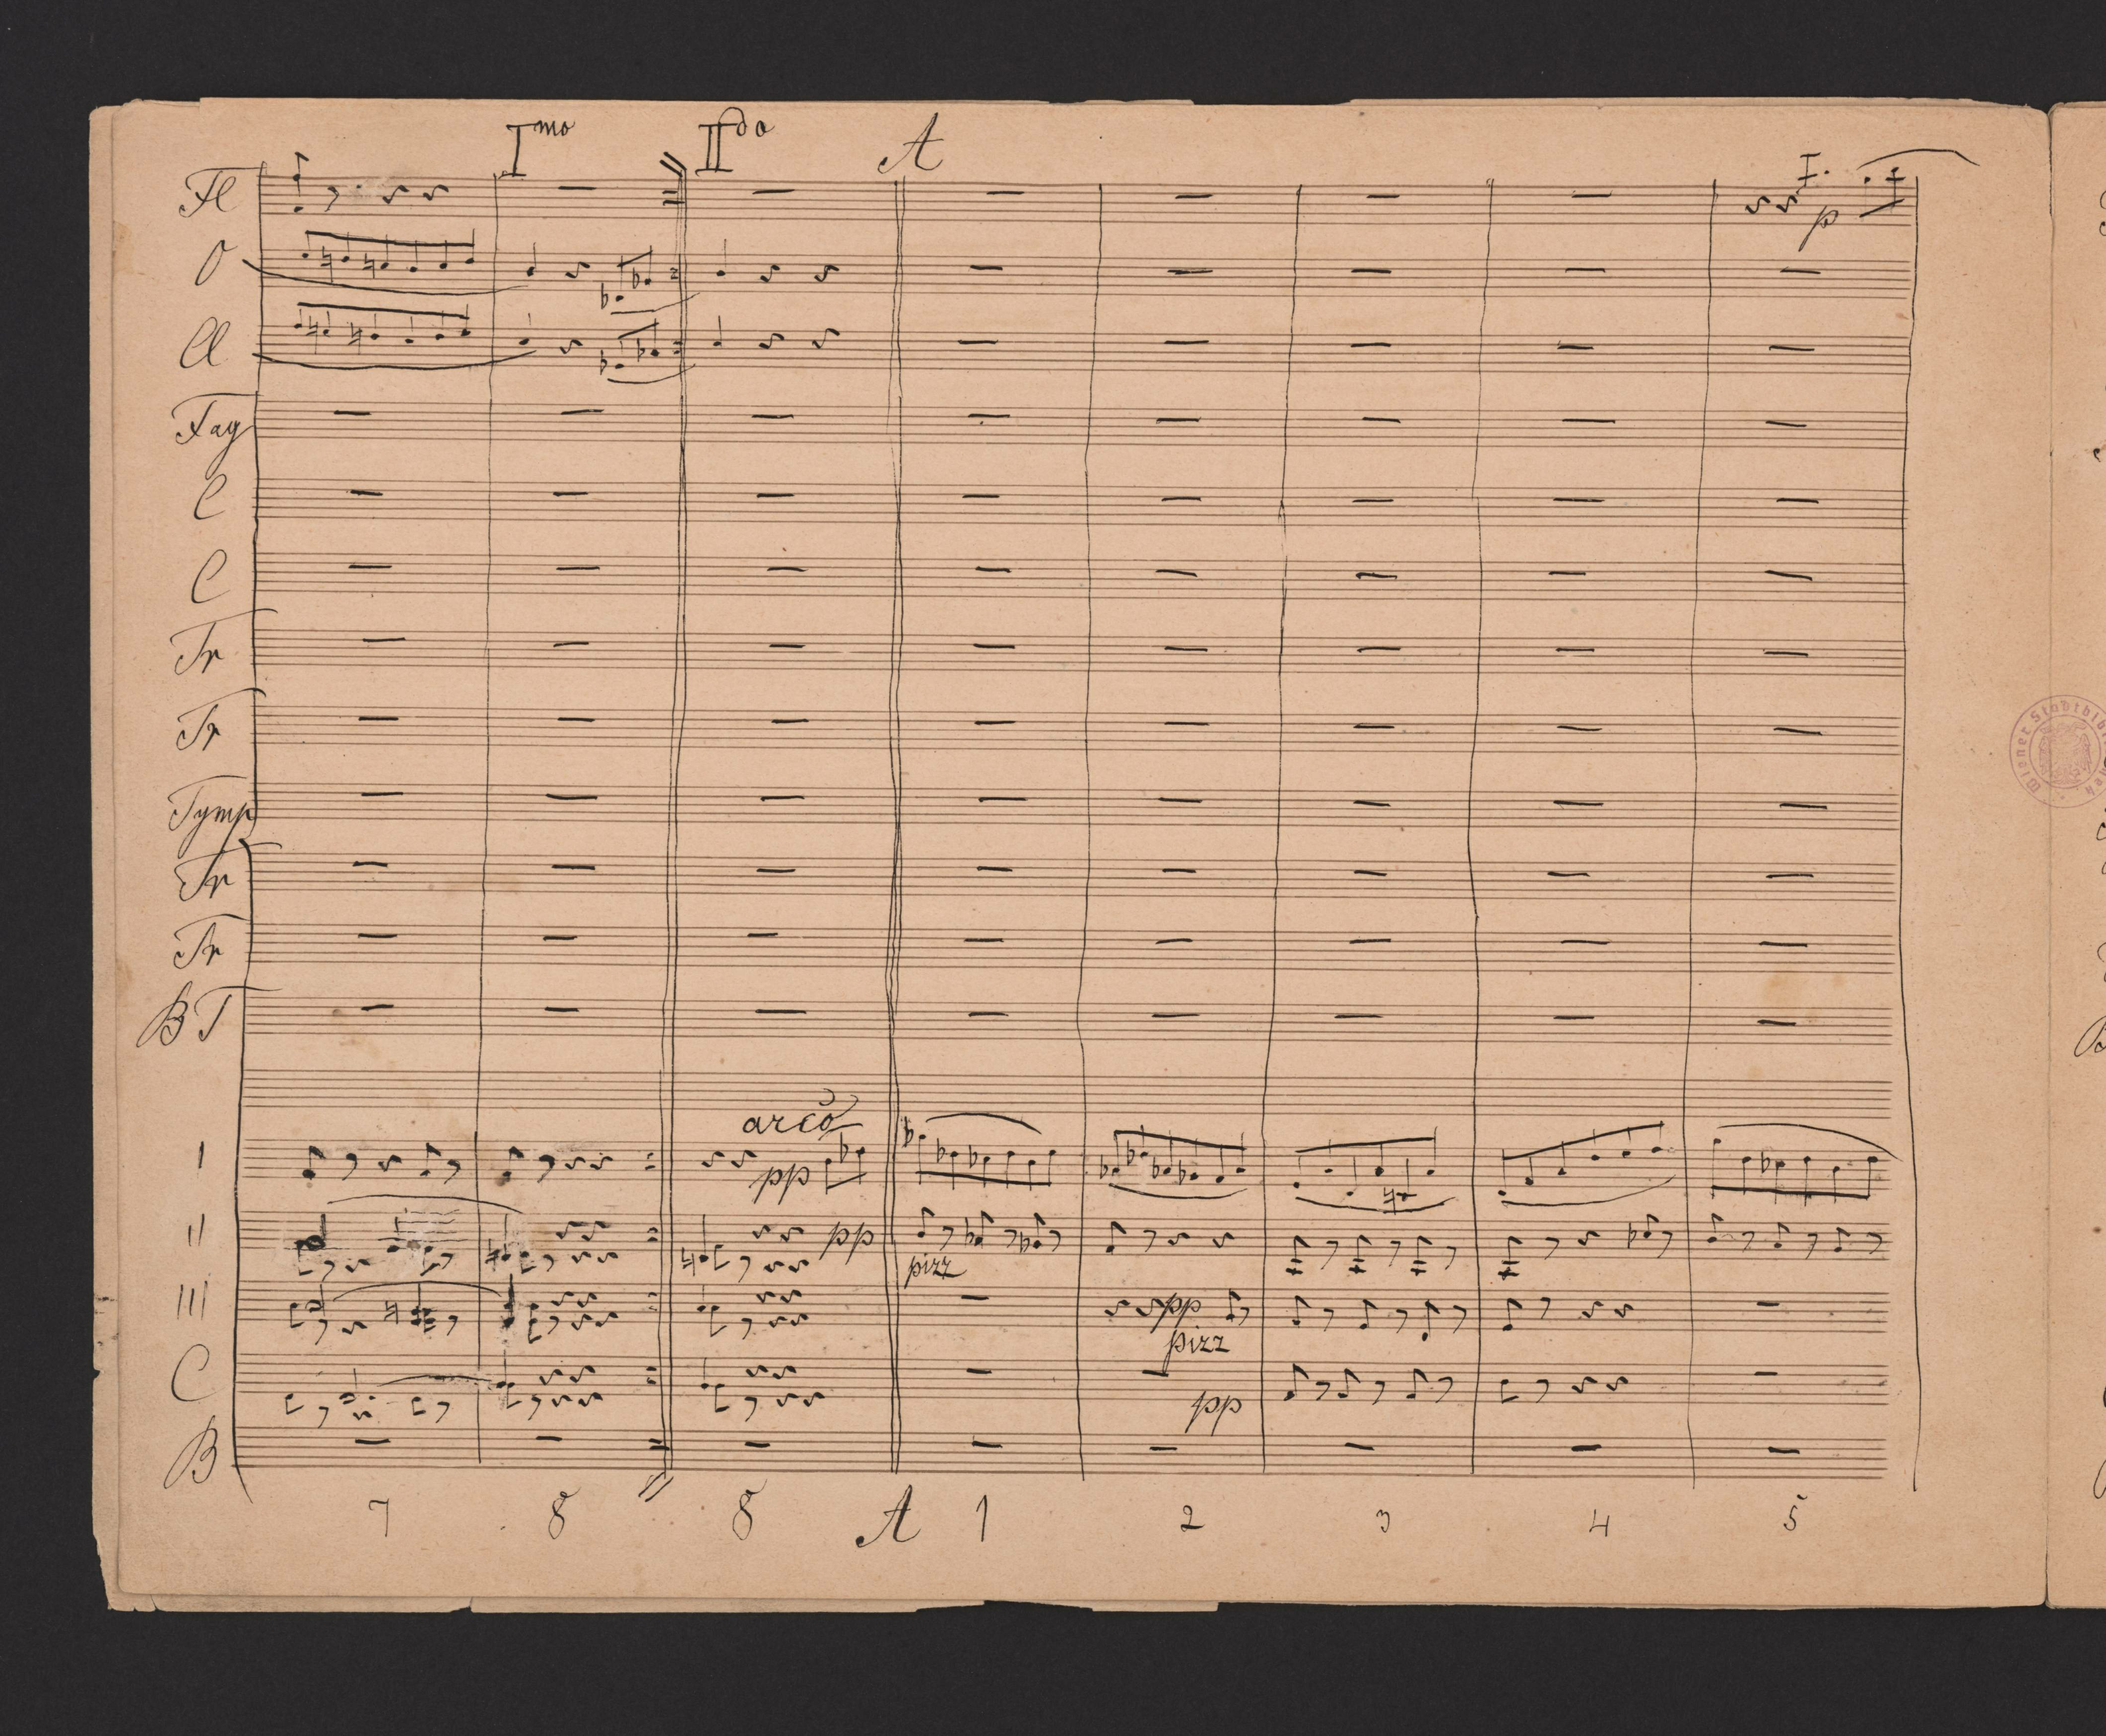 Imo IIdo A
Fl I. p
O
Cl
Fag
C
C
Tr
Tr
Tymp
Tr
Tr
BT
arco
I pp
II pp
pizz
III pp
pizz
C pp
B
7 8 8 A 1 2 3 4 5
Wiener Stadtbibl